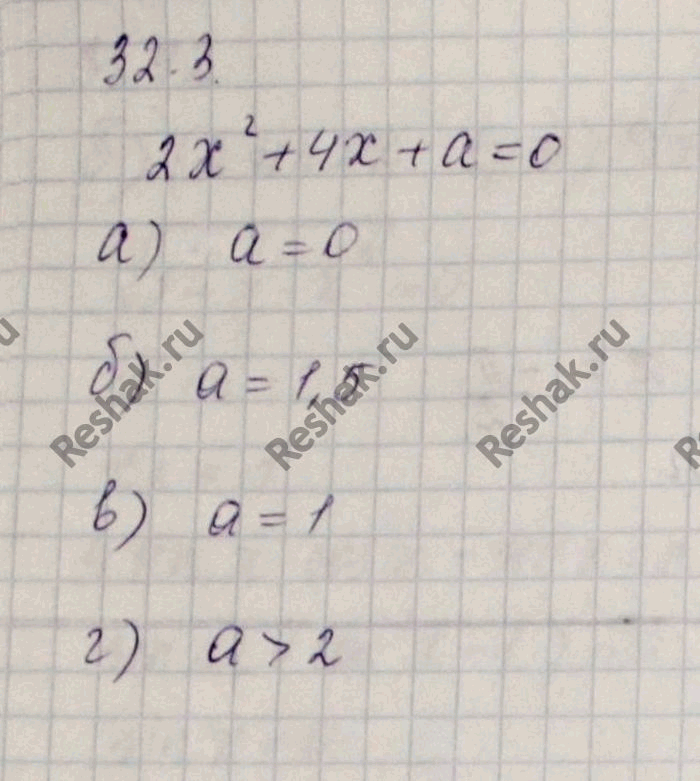 32.3.
2x² + 4x + a = 0
а) a = 0
б) a = 1,5
в) a = 1
г) a > 2
Reshak.ru
Reshak.ru
Reshak.ru